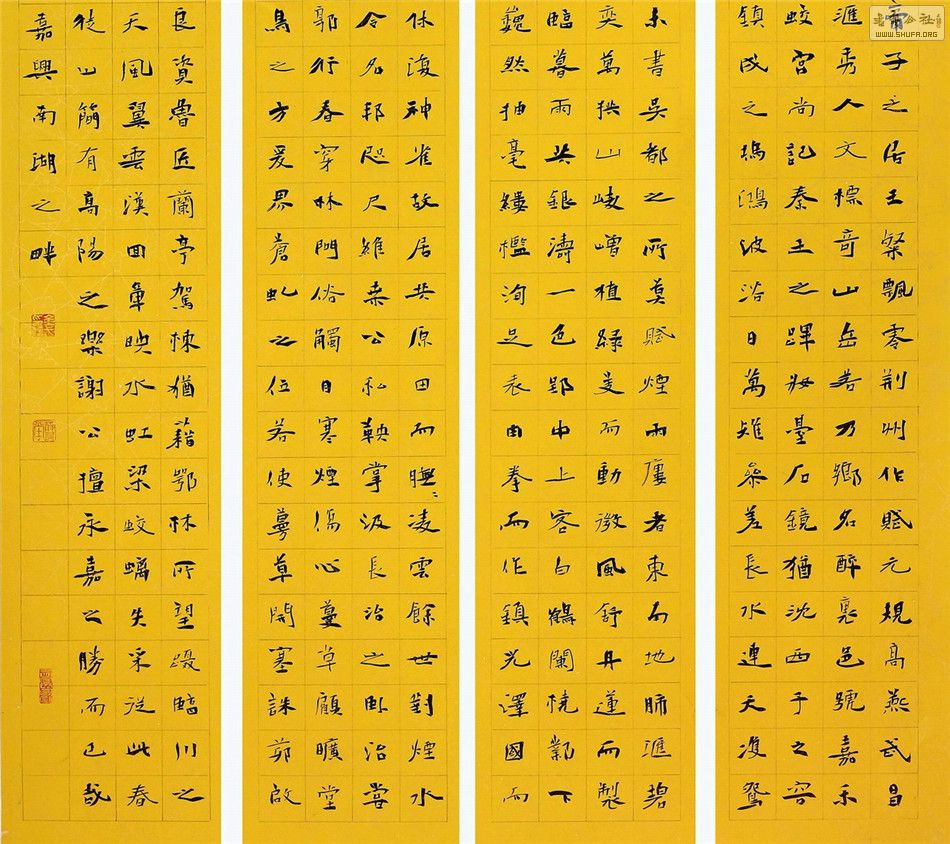 帝子之居王粲飄零荆州作賦元規高燕武昌
滙秀人文標奇山岳若乃鄉名醉裏邑號嘉禾
蛟宮尚記秦王之蹕妝臺石鏡猶沈西子之容
鎮戍之塢鴻波浴日萬雉參差長水連天鴛
未書吳都之所莫賦煙雨廔者東南地肺滙碧
奕萬拱山崚嶒植綠芰而動微風舒丹蓮而製
臨暮雨共銀濤一色郢中上客白鶴闌橈鄴下
巍然抽毫縷檻洵足表由拳而作鎮光澤國而
休復神雀故居共原田而膴々凌雲餘世對煙水
令名邦咫尺維桑公私鞅掌汲長治之卧治嘗
郭行春穿林問俗觸目寒煙傷心蔓草顧曠堂
鳥之方爰界蒼虬之位若使蔓草開塞誅茆啟
良資魯匠蘭亭駕棟猶藉鄂林所望躡臨川之
天風翼雲漢回車映水虹梁蛟螭失采從此春
徒山簡有高陽之樂謝公擅永嘉之勝而已哉
嘉興南湖之畔
WWW.SHUFA.ORG